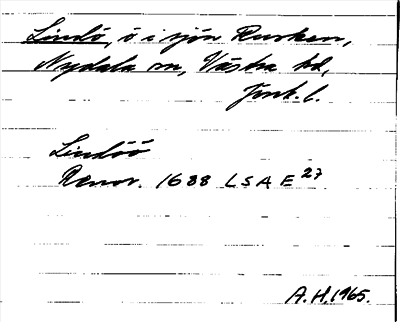 Lindö, ö i sjön Rusken,
Nydala sn, Västra hd,
Jönk. l.
Lindöö
Renov. 1688 LSA E 27
A.H. 1965.